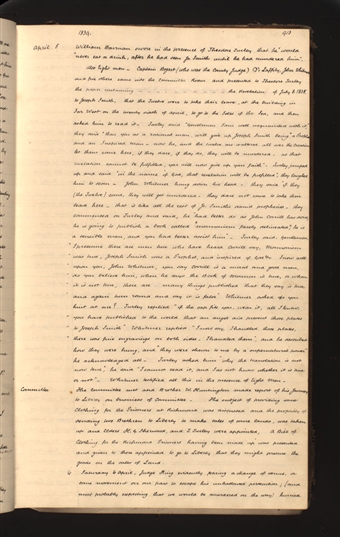 1839. 913
April 5 William Bowman swore in the presence of Theodore Turley that he "would
"never eat or drink, after he had seen Jo Smith until he had murdered him".
Also Eight men — Captain Bogart (who was the County Judge) Dr Laffity, John Whitmer
and five others came into the Committee's Room and presented to Theodore Turley
the paper containing the Revelation of July 8, 1838
to Joseph Smith, that the Twelve were to take their leave, at the building in
Far West on the twenty sixth of April, to go to the Isles of the Sea, and then
asked him to read it. Turley said "Gentlemen I am well acquainted with it"
they said "then you as a rational man, will give up Joseph Smith's being "a Prophet
and an Inspired man — now he, and the Twelve are scattered all over the Creation
let them come here, if they dare, if they do, they will be murdered, as that
revelation cannot be fulfilled, you will now give up your faith". Turley jumped
up and said "in the name of God, that revelation will be fulfilled", they laughed
him to scorn. John Whitmer hung down his head. They said if they
(the Twelve) come, they will get murdered, they dare not come to take their
leave here, that is like all the rest of Jo Smith's damned prophecies. they
commenced on Turley and said, he had better do as John Corrill has done,
he is going to publish a book called "Mormonism fairly delineated" he is
a sensible man, and you had better assist him". Turley said, "gentlemen,
"I presume there are men here who have heard Corrill say, Mormonism
"was true, Joseph Smith was a Prophet, and inspired of God &c I now call
upon you, John Whitmer, you say Corrill is a moral and good man,
do you believe him, when he says the Book of Mormon is true, or when
it is not true, there are many things published that they say is true,
and again turn round and say it is false" Whitmer asked "do you
hint at me?" Turley replied "if the cap fits you, wear it, all I know,
you have published to the world that an angel did present those plates
"to Joseph Smith". Whitmer replied "I now say, I handled those plates,
"there was fine engravings on both sides. I handled them", and he described
how they were hung, and "they were shown to me by a supernatural power"
he acknowledged all. Turley asked him "why the translation is not
now true", he said "I cannot read it, and I do not know whether it is true
or not". Whitmer testified all this in the presence of Eight Men.
Committee The Committee met and Brother Wm Huntington made report of his journey
to Liberty on business of Committee. The subject of providing some
Clothing for the Prisoners at Richmond was discussed and the propriety of
sending two Brethren to Liberty to make sales of some lands, was taken
up and Elders H. G. Sherwood, and T. Turley were appointed. A Bill of
Clothing for the Richmond Prisoners having been made up was presented
and given to those appointed to go to Liberty that they might procure the
goods on the sales of Land.
6 Saturday 6 April. Judge King evidently fearing a change of venue, or
some movement on our part to escape his unhallowed persecution, (and
most probably expecting that we would be murdered on the way) hurried